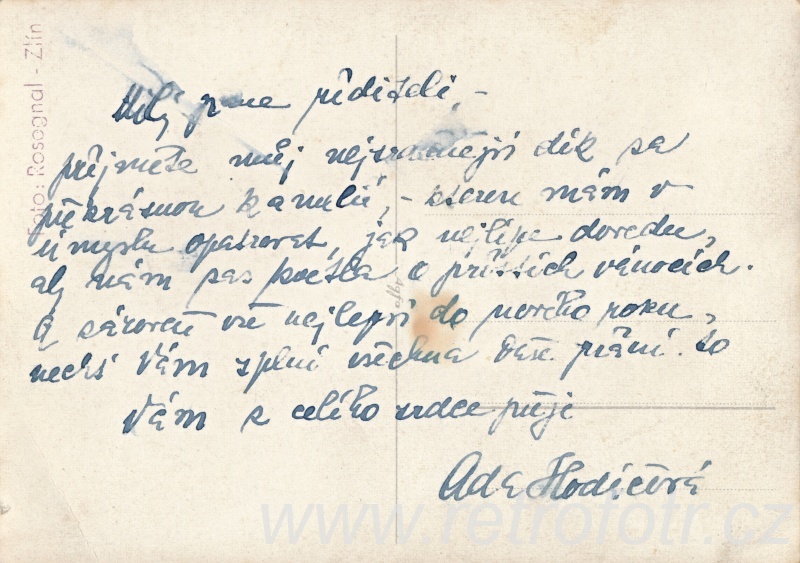 Foto: Rosognal - Zlín
Milý pane řediteli, -
přijměte můj nejsrdečnější dík za
překrásnou kamelii, - kterou mám v
úmyslu opatrovat, jak nejlépe dovedu,
aby nám zas kvetla o příštích vánocích.
A zároveň vše nejlepší do nového roku,
nechť Vám splní všechna Vaše přání. to
Vám z celého srdce přeji
Ada
www.retrofotr.cz